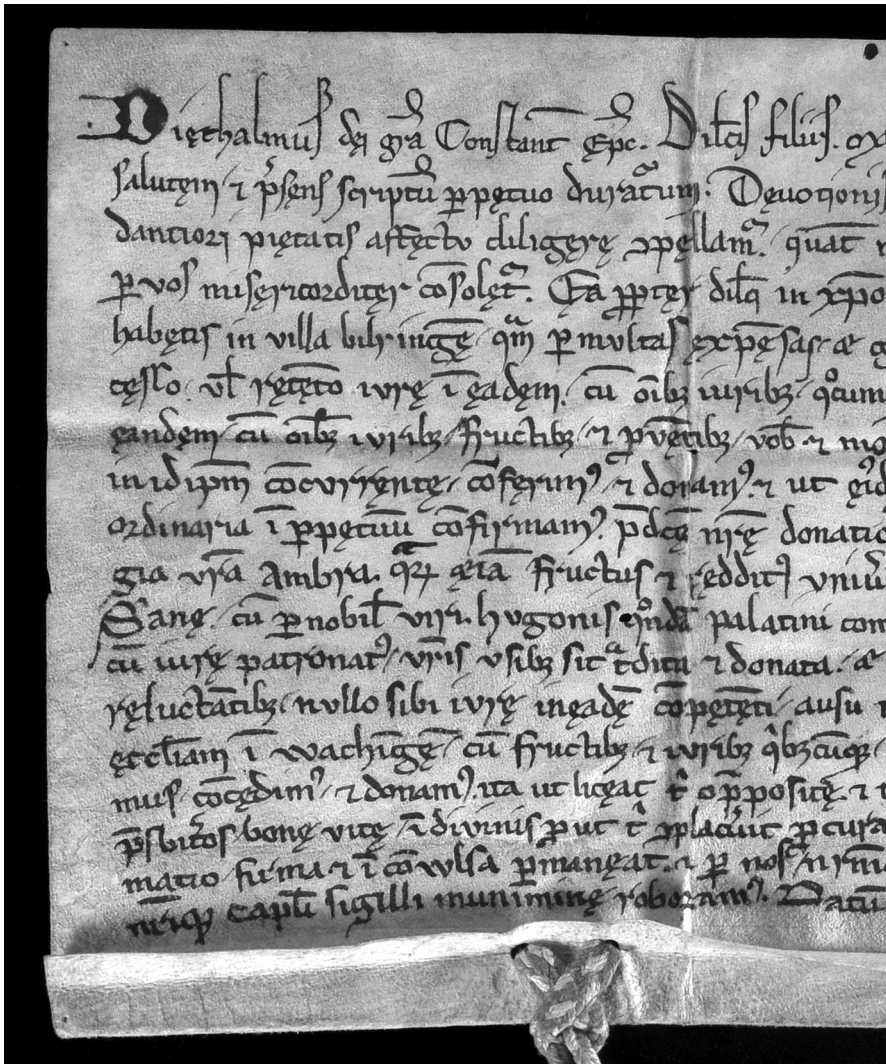 Diethalmus dei gr̄a Constant̄ Ep̄c. Dilc̄is filiis.
salutem / ⁊ p̄sens scriptū ꝑpetuo duraturum. Deuotionis
dantiori pietatis affectu diligere ꝯpellamur. quat̄
ꝑ vos misericorditer cōsolet᷑. Ea ꝓpter dil̄c̄i in xp̄o
habetis in villa bihringē / qm̄ ꝑ mvltas expēsas / ⁊
vl̄ retēto ivre ī eadem. cū oīb; iurib; / qͦcum
eandem / cū oīb; ivrib; / fructib; / ⁊ ꝑvētib; / vob̄ ⁊
in id ip̄m cōcvrrente / cōferimꝰ / ⁊ donamꝰ. ⁊ ut
ordinaria ī ꝑpetuū cōfirmamꝰ. p̄dc̄e nr̄e donatio
gia vr̄a Ambra. qꝛ etiā fructus ⁊ redditꝰ vniū
Sane / cū ꝑ nobil̄ viri. hvgonis qͦndā palatini com
cū iure patronatꝰ / vr̄is vsib; sit tͣdita ⁊ donata.
reluctātib; / nvllo sibi ivre in eadē cōpetēti / ausu
eccl̄iam ī wachingē / cū fructib; / ⁊ ivrib; qͥb;cūqꝫ
mus / cōcedimꝰ / ⁊ donamꝰ. ita ut liceat opposite. ⁊
p̄sbit̄os bone vite / ī divinis ꝓ ut ꝯplacu̅it ꝓcura
matio firma ⁊ īcōvvlsa ꝑmaneat. ⁊ ꝑ nos᷑ nr̄m
nr̄iqꝫ capl̄i sigilli munimine roboramꝰ. Datū